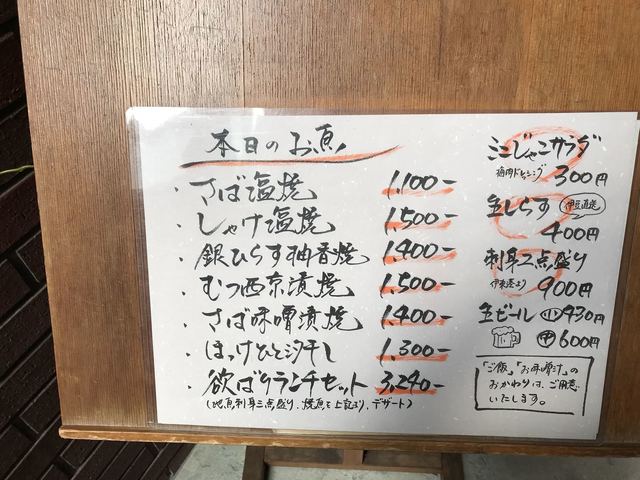 本日のお魚
・さば塩焼 1,100-
・しゃけ塩焼 1,500-
・銀ひらす柚香焼 1,400-
・むつ西京漬焼 1,500-
・さば味噌漬焼 1,400-
・ほっけひと汐干し 1,300-
・欲ばりランチセット 3,240-
(地魚刺身三点盛り、焼魚を上記より、デザート)
ミニじゃこサラダ
梅肉ドレッシング 300円
生しらす 伊豆直送
400円
刺身二点盛り
伊東港より 900円
生ビール 小 430円
中 600円
「ご飯」「お味噌汁」の
おかわりは、ご用意
いたします。